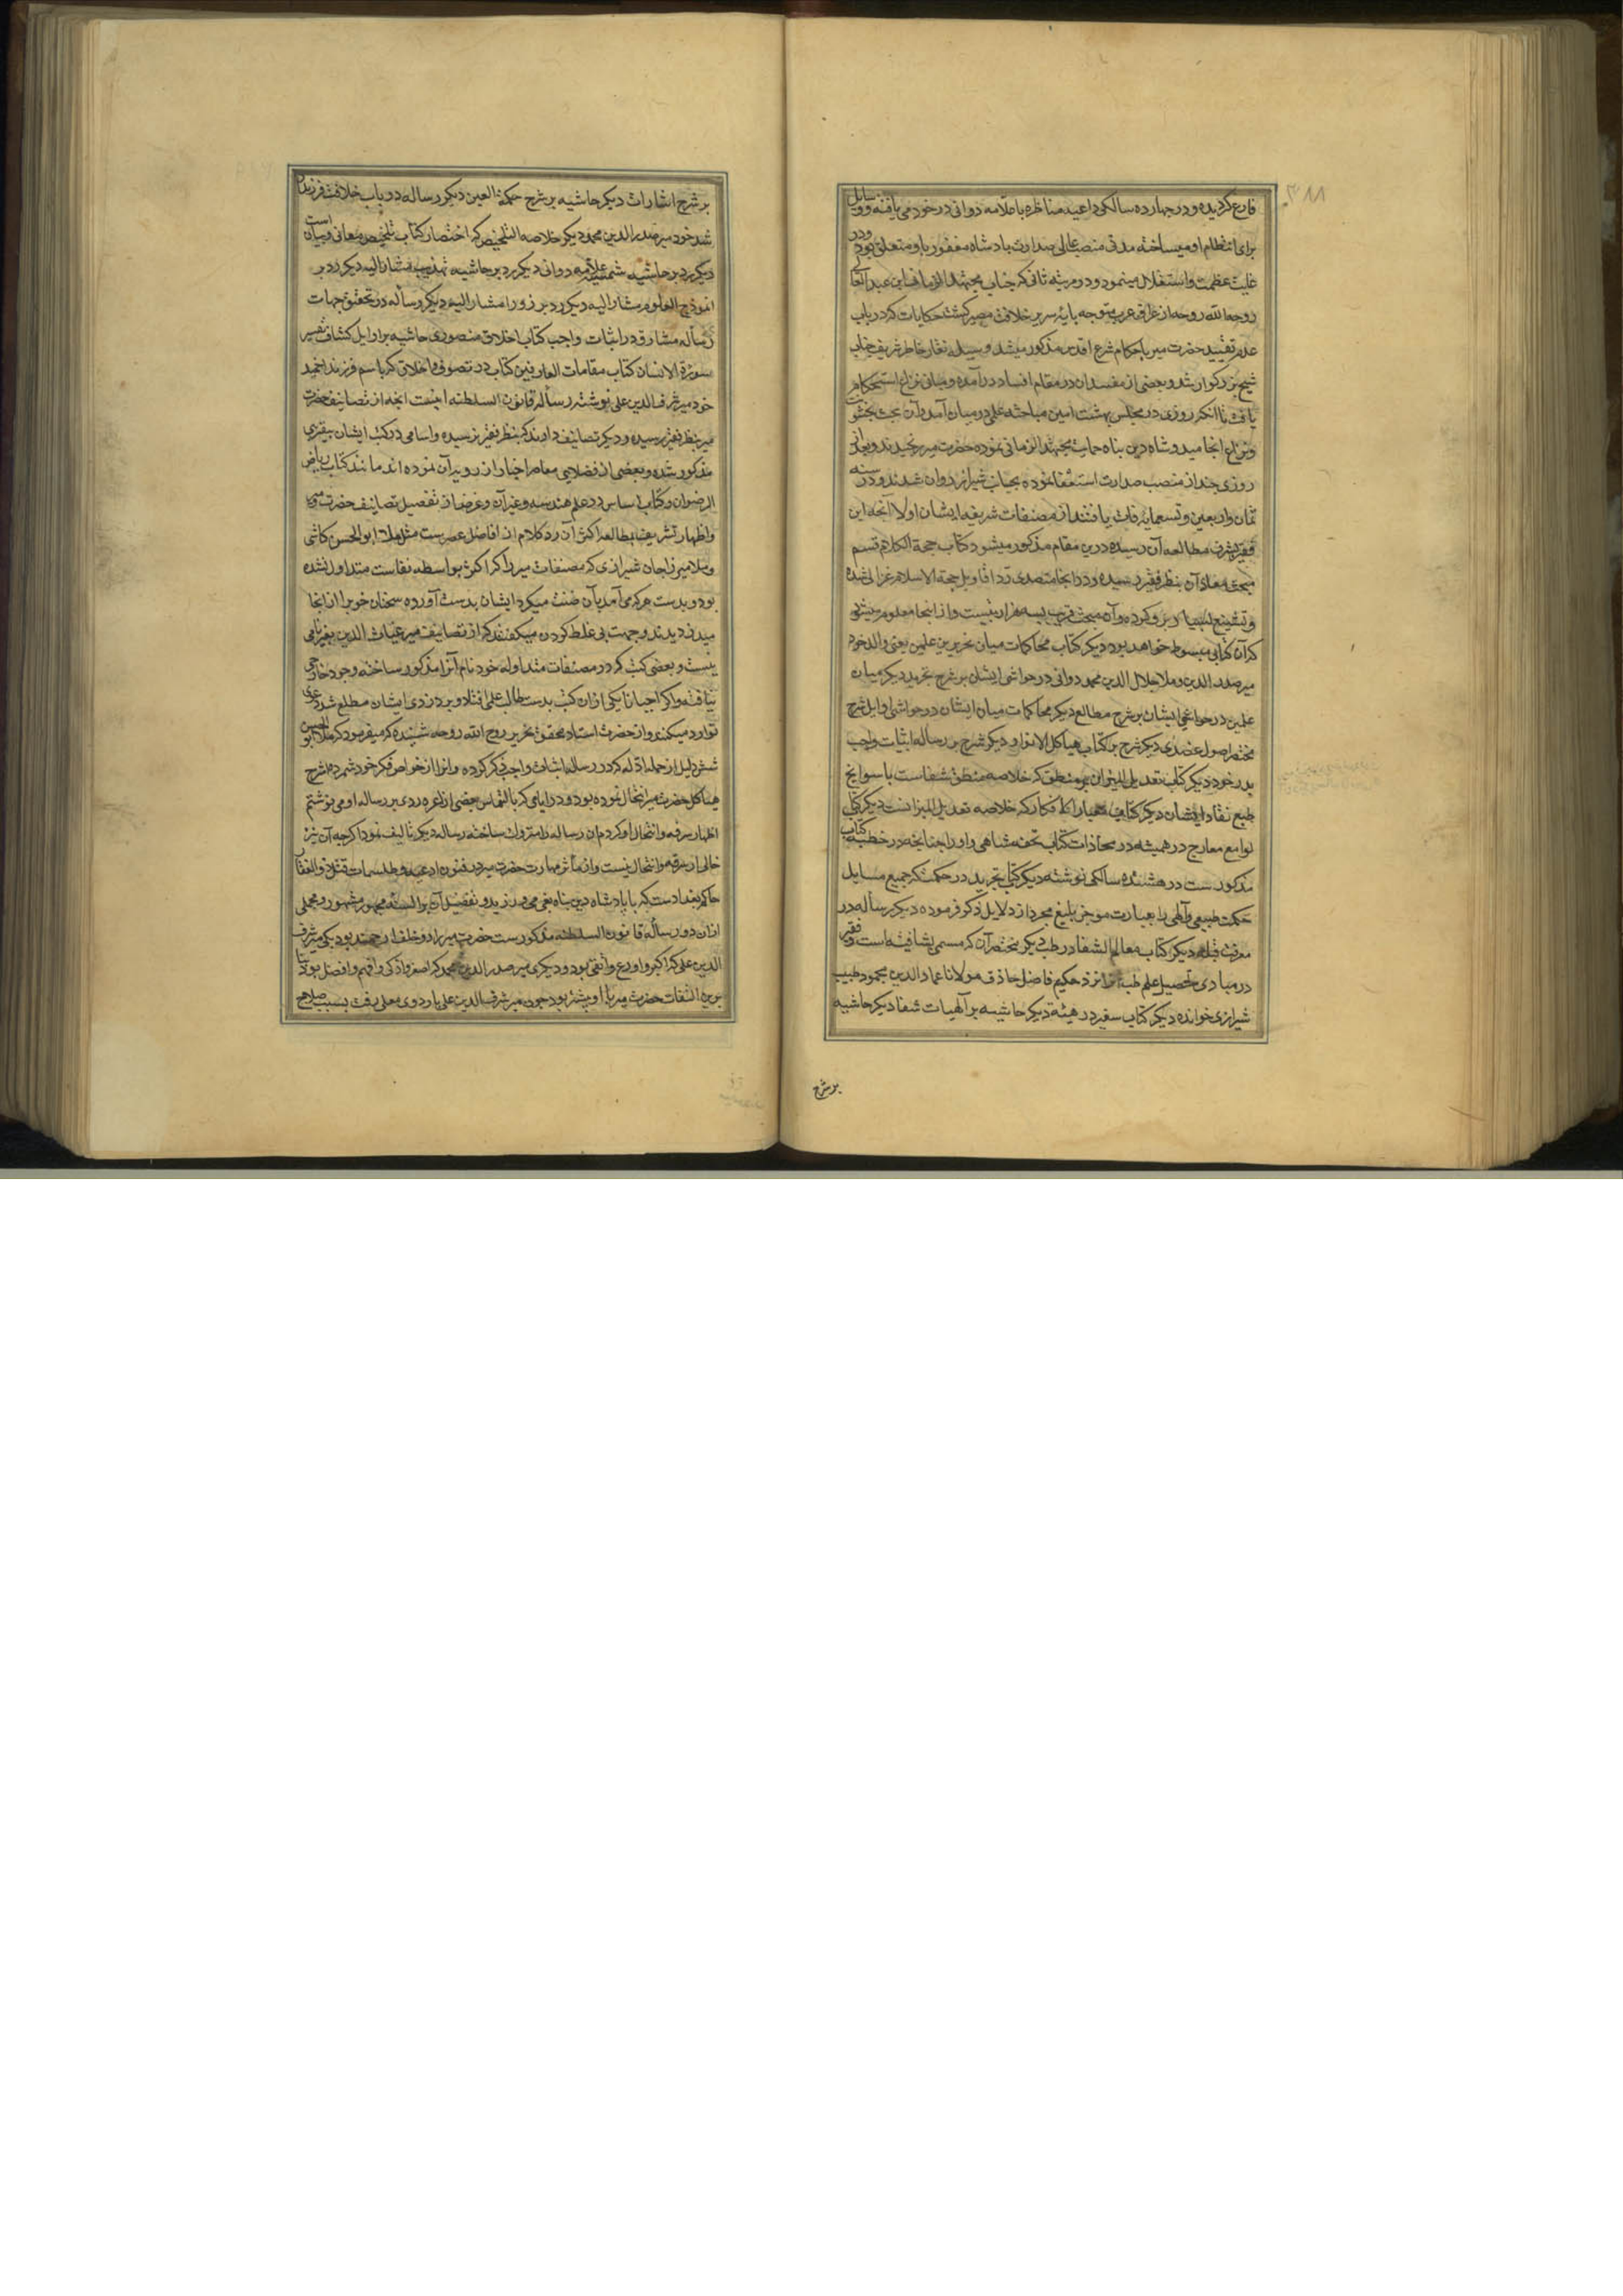 فارغ گردیده و در چهارده سالگی داعیه مناظره با علامه دوانی در خود می یافته و وسایل
برای انتظام او میساخته مدتی منصب عالی صدارت پادشاه مغفور باو متعلق بود و در
غایت عظمت و استقلال مینمود و در مرتبه ثانی که جناب مجتهد الزمانی این عبد العال
روح الله روحه از عراق عرب متوجه پایه سریر خلافت مصیر گشت حکایات که در باب
عدم تقیید حضرت میر باحکام شرع اقدس مذکور میشد وسیله نقار خاطر شریف جناب
شیخ بزرگوار شد و بعضی از مفسدان در مقام افساد در آمده و مبانی نزاع استحکام
یافت تا آنکه روزی در مجلس بهشت آیین مباحثه علمی در میان آمد و آن بحث بخشونت
و نزاع انجامید و شاه دین پناه حمایت مجتهد الزمانی نموده حضرت میر رنجیدند و بعد از
روزی چند از منصب صدارت استعفا نموده بجانب شیراز روان شدند و در سنه
ثمان و اربعین و تسعمایه وفات یافتند از مصنفات شریفه ایشان اولا آنچه این
فقیر بشرف مطالعه آن رسیده درین مقام مذکور میشود کتاب حجة الکلام قسم
مبحث معاد آن بنظر فقیر رسیده و در آنجا متصدی رد اقاویل حجة الاسلام غزالی شده
و تشنیع بسیار برو کرده و آن مبحث قریب بسه هزار بیت است و از اینجا معلوم میشود
که آن کتابی مبسوط خواهد بود دیگر کتاب محاکمات میان تحریرین علمین یعنی والد خود
میر صدر الدین و ملا جلال الدین محمد دوانی در حواشی ایشان بر شرح تجرید دیگر میان
علمین در حواشی ایشان بر شرح مطالع دیگر محاکمات میان ایشان در حواشی اوایل شرح
مختصر اصول عضدی دیگر شرح بر کتاب هیاکل الانوار و دیگر شرح بر رساله اثبات واجب
پدر خود دیگر کتاب تعدیل المیزان در منطق که خلاصه منطق شفاست با سوانح
طبع نقاد ایشان دیگر کتاب معیار الافکار که خلاصه تعدیل المیزانست دیگر کتاب
لوامع معارج در همیشه در محاذات کتاب تحفه شاهی و او را چنانچه در خطبه کتاب
مذکورست در هشتده سالگی نوشته دیگر کتاب تجرید در حکمت که جمیع مسایل
حکمت طبیعی و آلهی را بعبارت موجز بلیغ مجرد از دلایل ذکر فرموده دیگر رساله در
معرفت قبله دیگر کتاب معالم الشفا در طب دیگر مختصر آن که مسمی بشافیه است و فقیر
در مبادی تحصیل علم طب آنرا نزد حکیم فاضل حاذق مولانا عماد الدین محمود طبیب
شیرازی خوانده دیگر کتاب سفیر در هیئه دیگر حاشیه بر آلهیات شفا دیگر حاشیه
بر شرح
بر شرح اشارات دیگر حاشیه بر شرح حکمة العین دیگر رساله در باب خلافت فرزند
شد خود میر صدر الدین محمد دیگر خلاصه التلخیص که اختصار کتاب تلخیص معانی و بیان است
دیگر رد بر حاشیه شمسیه علامه دوانی دیگر رد بر حاشیه تهذیب مشار الیه دیگر رد بر
انموذج العلوم مشار الیه دیگر رد بر زورا مشار الیه دیگر رساله در تحقیق جهات
رساله مشارق در اثبات واجب کتاب اخلاق منصوری حاشیه بر اوایل کشاف تفسیر
سورة الانسان کتاب مقامات العارفین کتاب در تصوف و اخلاق که باسم فرزند ارجمند
خود میر شرف الدین علی نوشته رساله قانون السلطنه اینست آنچه از تصانیف حضرت
میر بنظر فقیر رسیده و دیگر تصانیف دارند که بنظر فقیر نرسیده و اسامی در کتب ایشان بتقریبی
مذکور شده و بعضی از فضلای معاصر اخبار از رویت آن نموده اند مانند کتاب ریاض
الرضوان و کتاب اساس در علم هندسه و غیر آن و غرض از تفصیل تصانیف حضرت میر
و اظهار تشریف بمطالعه اکثر آن رد کلام از افاضل عصرست مثل ملا ابو الحسن کاشی
و ملا میرزا جان شیرازی که مصنفات میر را که اکثر بواسطه نفاست متداول نشده
بود و بدست هر که می آمد بآن ضنت میکرد ایشان بدست آورده سخنان خوب را از آنجا
میدزدیدند و جهت پی غلط کردن میگفتند که از تصانیف میر غیاث الدین بغیر نامی
نیست و بعضی کتب که در مصنفات متداوله خود نام آنرا مذکور ساخته وجود خارجی
نیافته و اگر احیانا یکی ازان کتب بدست طالب علمی افتاد و بر دزدی ایشان مطلع شد دعوی
توارد میکنند و از حضرت استاد محقق نحریر روح الله روحه شنیده که میفرمود که ملا ابو الحسن
شش دلیل از جمله ادله که در رساله اثبات واجب ذکر کرده و آنرا از خواص فکر خود شمرده از شرح
هیاکل حضرت میر انتحال نموده بود و در ایامی که بالتماس بعضی از اعزه ردی بر رساله او می نوشتم
اظهار سرقه و انتحال او کردم آن رساله را متروک ساخته رساله دیگر تالیف نمود اگرچه آن نیز
خالی از سرقه و انتحال نیست و از مآثر مهارت حضرت میر در فنون ادعیه و طلسمات قتل ذو الفقار
حاکم بغداد است که با پادشاه دین پناه بغی می ورزید و تفصیل آن بر السنه جمهور مشهور و مجملی
ازان در رساله قانون السلطنه مذکورست حضرت میر را دو خلف ارجمند بود یکی میر شرف
الدین علی که اکبر و اورع و اتقی بود و دیگری میر صدر الدین محمد که اصغر و اذکی و افهم و افضل بود بنا
برین التفات حضرت میر با او بیشتر بود چون میر شرف الدین علی باردوی معلی رفت بسبب صلاح